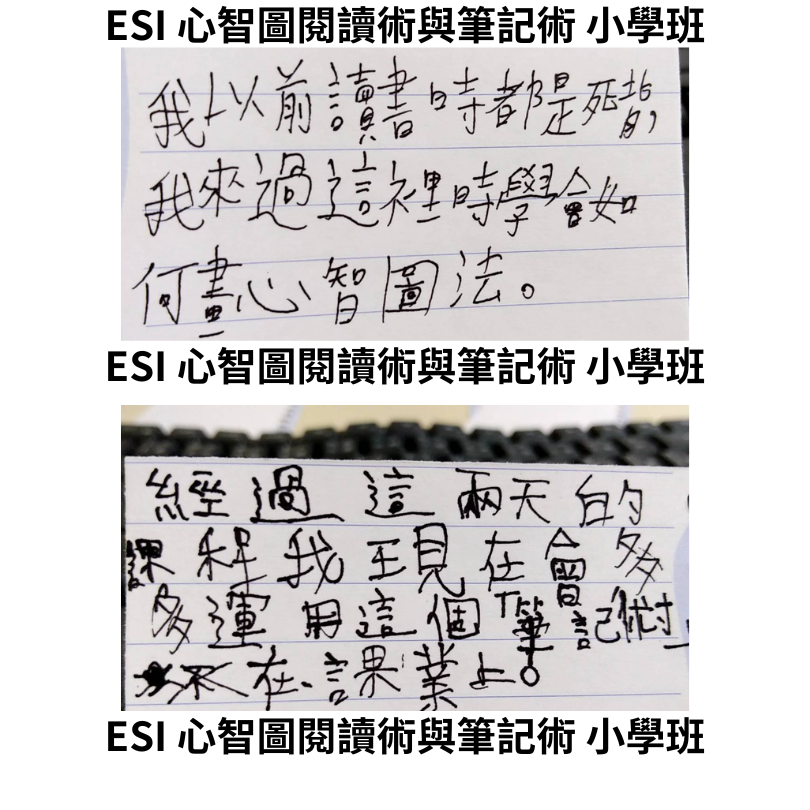 ESI 心智圖閱讀術與筆記術 小學班
我以前讀書時都是死背,
我來過這裡時學會如
何畫心智圖法。
ESI 心智圖閱讀術與筆記術 小學班
經過這兩天的
課程我現在會多
多運用這個筆記術
在課業上。
ESI 心智圖閱讀術與筆記術 小學班